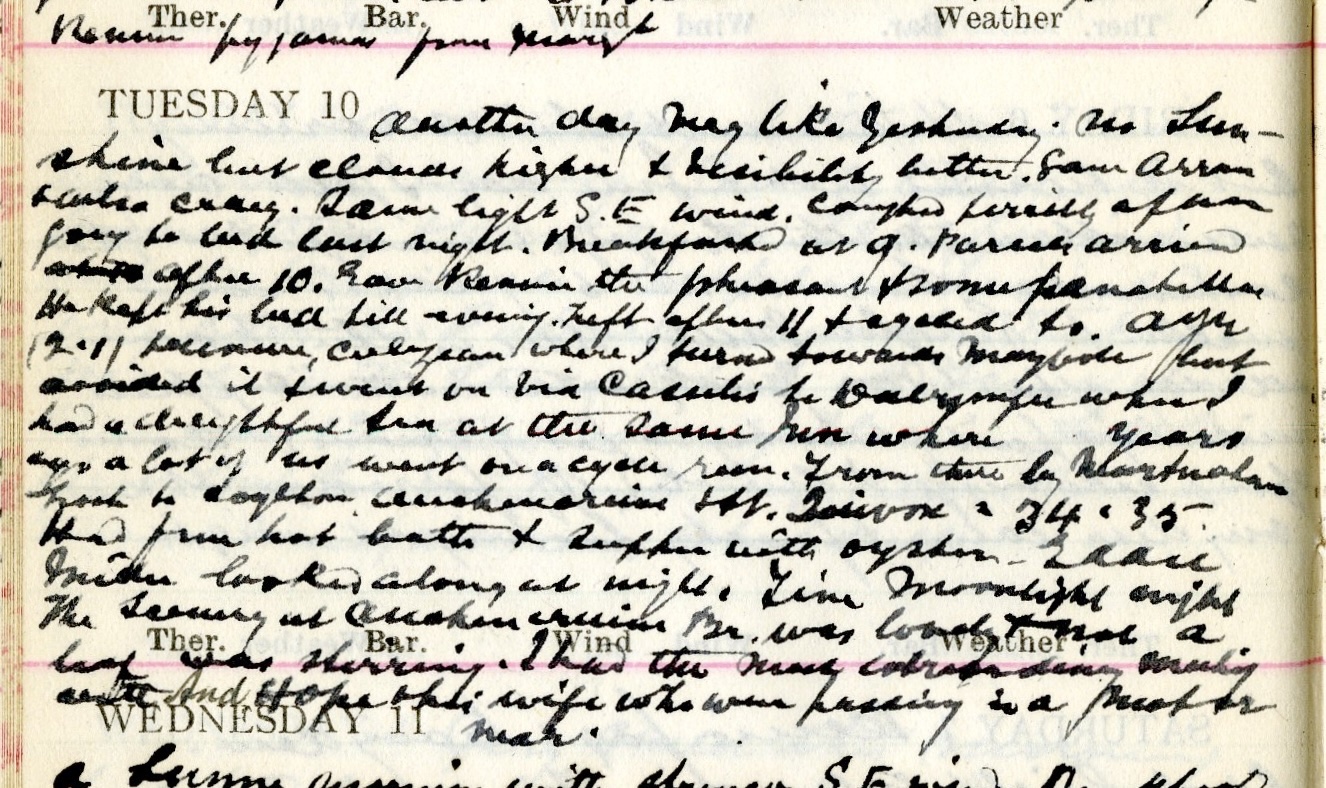 Ther. Bar. Wind Weather
pyjamas from
TUESDAY 10
Another day very like yesterday. No Sun-
shine but clouds higher & visibility better. Saw Arran
& Ailsa Craig. Same light S.E wind. Coughed after
going to bed last night. Breakfast at 9. arrived
after 10. Gave Rennie the pheasant & some
He kept his bed till evening. Left after 11 & cycled to. Ayr
Culzean where I turned towards Maybole but
avoided it & went on via Cassilis to Dalrymple where I
had a delightful tea at the same Inn where years
ago a lot of us went on a cycle run. From there by Martnaham
Loch to Coylton Auchencruive & St. Quivox = 34.35.
Had fine hot bath & supper with oysters - Eddie
looked along at night. Fine Moonlight night
The Scenery at Auchencruive Br. was lovely not a
Ther. Bar. Wind Weather
leaf was stirring. I had the most meeting
And Hope & his wife who were passing in a Motor
WEDNESDAY 11
near.
A Sunny morning with stronger S.E wind.